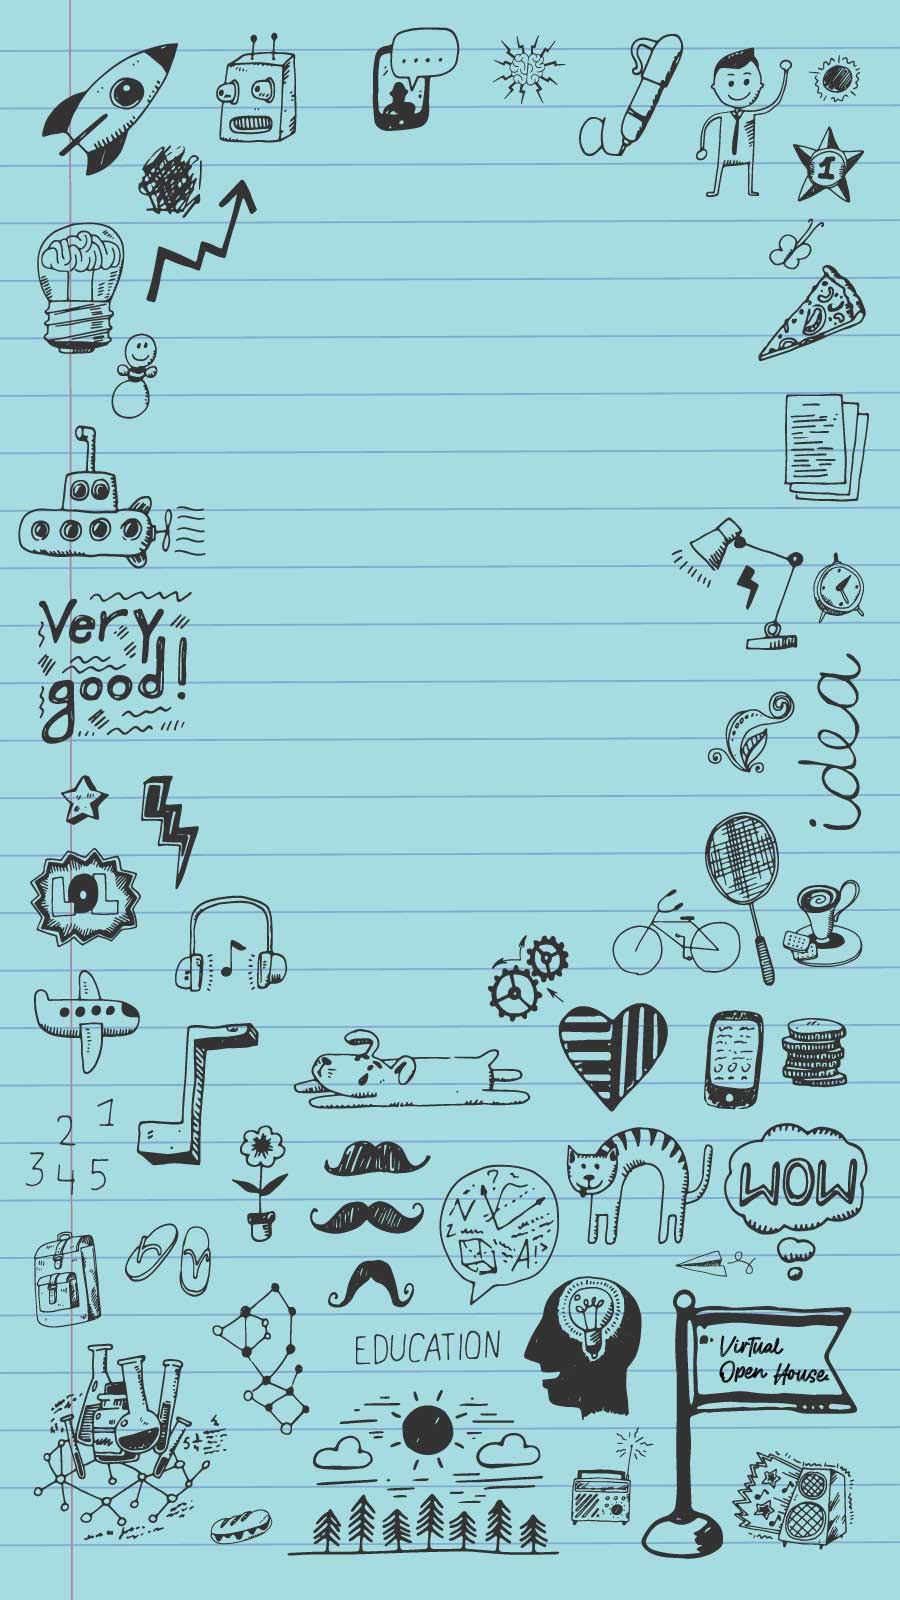 1
Very
good!
idea
LOL
1
2
3 4 5
WOW
A!
EDUCATION
Virtual
Open House